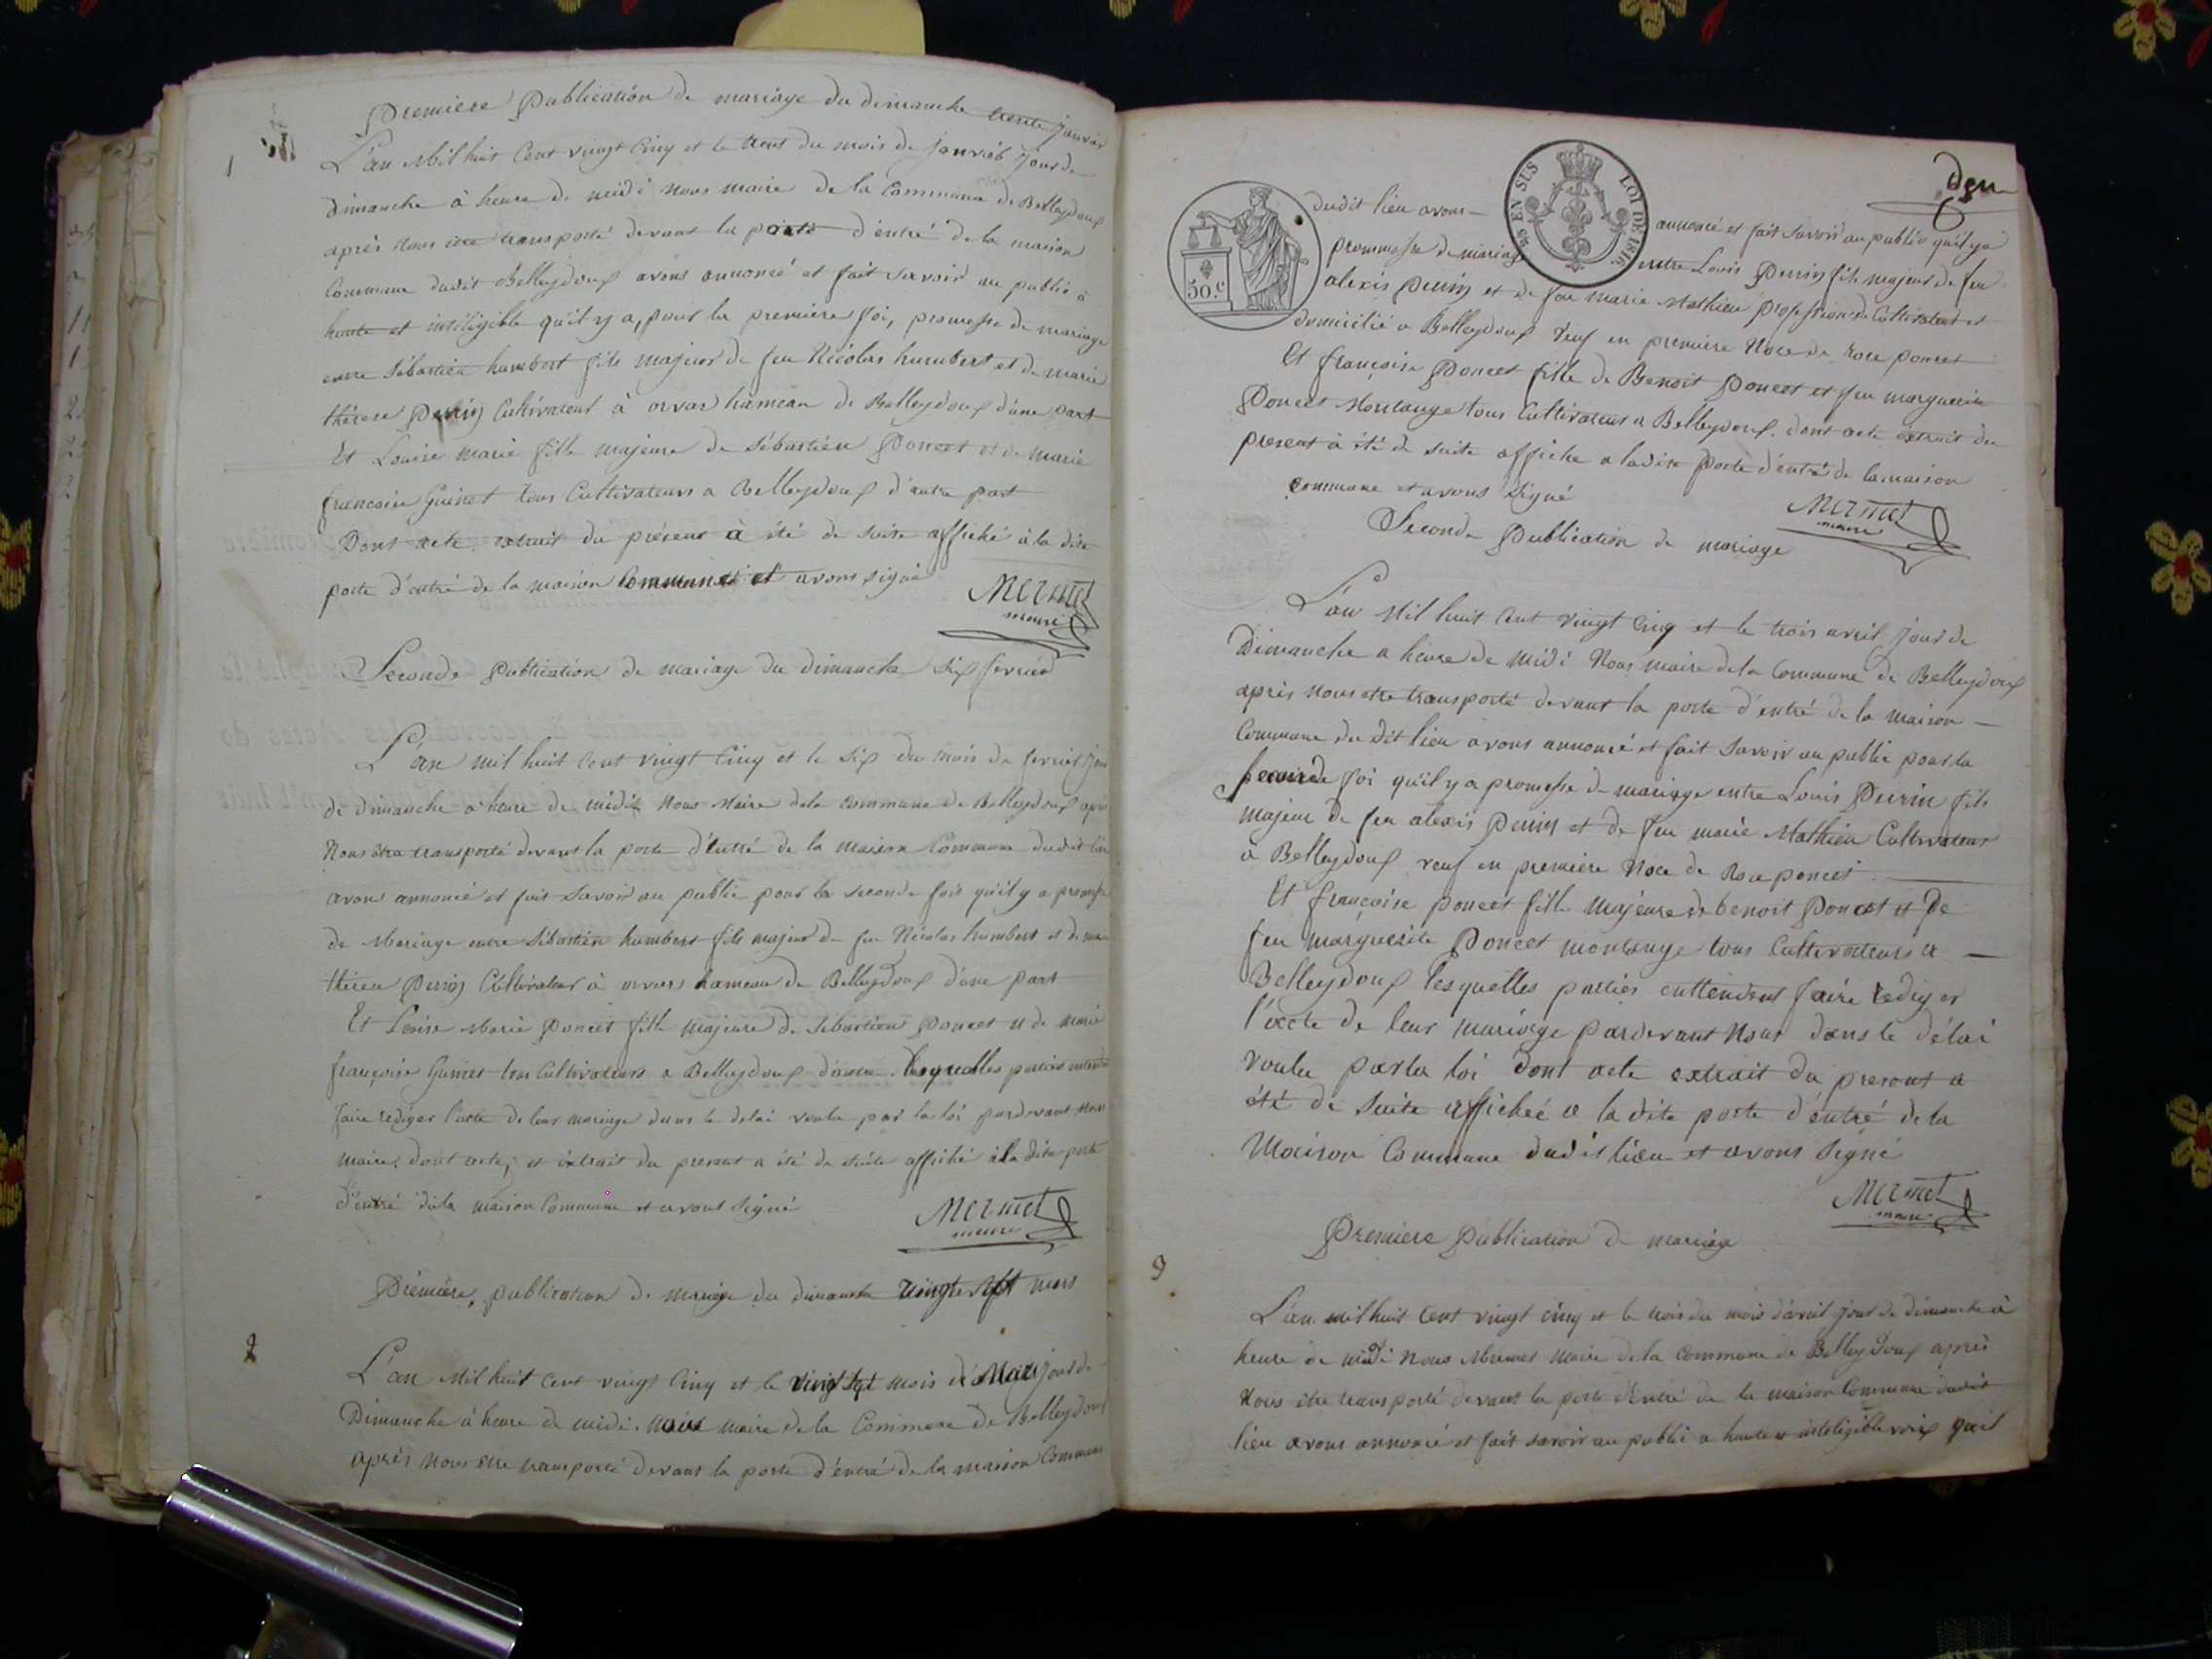 Premiere Publication de mariage du dimanche trente janvier
1
L'an Mil huit Cent vingt Cinq et le trent du mois de janvier jour de
dimanche à heure de midi nous maire de la Commune de Belleydoux
après nous etre transporté devant la porte d'entré de la maison
Commune dudit Belleydoux avons annoncé et fait savoir au public à
haute et inteligible qu'il y a, pour la première foi, promesse de mariage
entre Sébastien humbert fils majeur de feu Nicolas humbert et de marie
thérese Perrin Cultivateur à orvas hameau de Belleydoux d'une part
Et Louise marie fille majeure de Sébastien Poncet et de marie
francoise Guinet tous Cultivateurs a Belleydoux d'autre part
Dont acte, extrait du présent à été de suite affiché à la dite
porte d'entré de la maison Commune et avons signé
Mermet
maire
Seconde Publication de mariage du dimanche six fevrier
L'an mil huit Cent vingt Cinq et le six du mois de fevrier jour
de dimanche a heure de midi Nous Maire dela Commune de Belleydoux apres
Nous etre transporté devant la porte d'entré de la maison Commune dudit lieu
avons annoncé et fait savoir au public pour la seconde fois qu'il y a promesse
de Mariage entre Sébastien humbert fils majeur de feu Nicolas humbert et de marie
thérese Perrin Cultivateur à orvas hameau de Belleydoux d'une part
Et Louise Marie Poncet fille majeure de Sébastien Poncet et de marie
françoise Guinet tous Cultivateurs a Belleydoux d'autre. lesquelles parties entendent
faire rediger l'acte de leur mariage dans le delai voulu par la loi pardevant nous
maire. dont acte, et extrait du present a été de suite affiché à la dite porte
d'entré de la maison Commune et avons Signé
Mermet
maire
Premiere publication de mariage du dimanche vingt sept mars
2
L'an Mil huit Cent vingt Cinq et le vingt sept mois de Mars jour de
Dimanche à heure de midi. Nous maire de la Commune de Belleydoux
après nous etre transporté devant la porte d'entré de la maison Commune
deux
50.c
EN SUS
LOI DE 1816
dudit lieu avons annoncé et fait savoir au public qu'il y a
prommesse de mariage entre Louis Perrin fils majeur de feu
alexis Perrin et de feu marie Mathieu profession de Cultivateur et
domicilié a Belleydoux veuf en premiere Noce de rose poncet
Et françoise Poncet fille de Benoit Poncet et feu marguerite
Poncet Montange tous Cultivateurs a Belleydoux. dont acte extrait du
present à été de suite affiche a ladite porte d'entré de la maison
commune et avons Signé
Mermet
maire
Seconde Publication de mariage
L'an Mil huit Cent vingt Cinq et le trois avril jour de
Dimanche a heure de midi Nous maire dela Commune de Belleydoux
après nous etre transporté devant la porte d'entré de la maison
Commune du dit lieu avons annoncé et fait Savoir au public pour la
seconde foi qu'il y a promesse de mariage entre Louis Perrin fils
majeur de feu alexis Perrin et de feu marie Mathieu Cultivateur
à Belleydoux veuf en premiere Noce de Rose poncet
Et françoise poncet fille majeure de benoit Poncet et de
feu marguerite Poncet montange tous Cultivateurs a
Belleydoux lesquelles parties enttendent faire rediger
l'acte de leur mariage pardevant Nous dans le délai
voulu par la loi dont acte extrait du present a
été de Suite affichée a la dite porte d'entré de la
Maison Commune dudit lieu et avons Signé
Mermet
maire
Premiere Publication de mariage
3
L'an mil huit Cent vingt cinq et le trois du mois d'avril jour de dimanche à
heure de midi nous Mermet maire dela Commune de Belleydoux après
Nous etre transporté devant la porte d'Entré de la maison Commune dudit
lieu avons annoncé et fait savoir au public a haute et inteligible voix quil